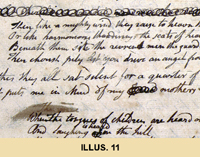 Then like a mighty wind they raise to heavn
Or like harmonious thunderings the seats of heav
Beneath them sit the revrend men the guard
Then cherish pity lest you drive an angel from
they all sat silent for a quarter of
puts me in Mind of my mothers
When the tongues of children are heard on
And laughing is heard the hill
ILLUS. 11